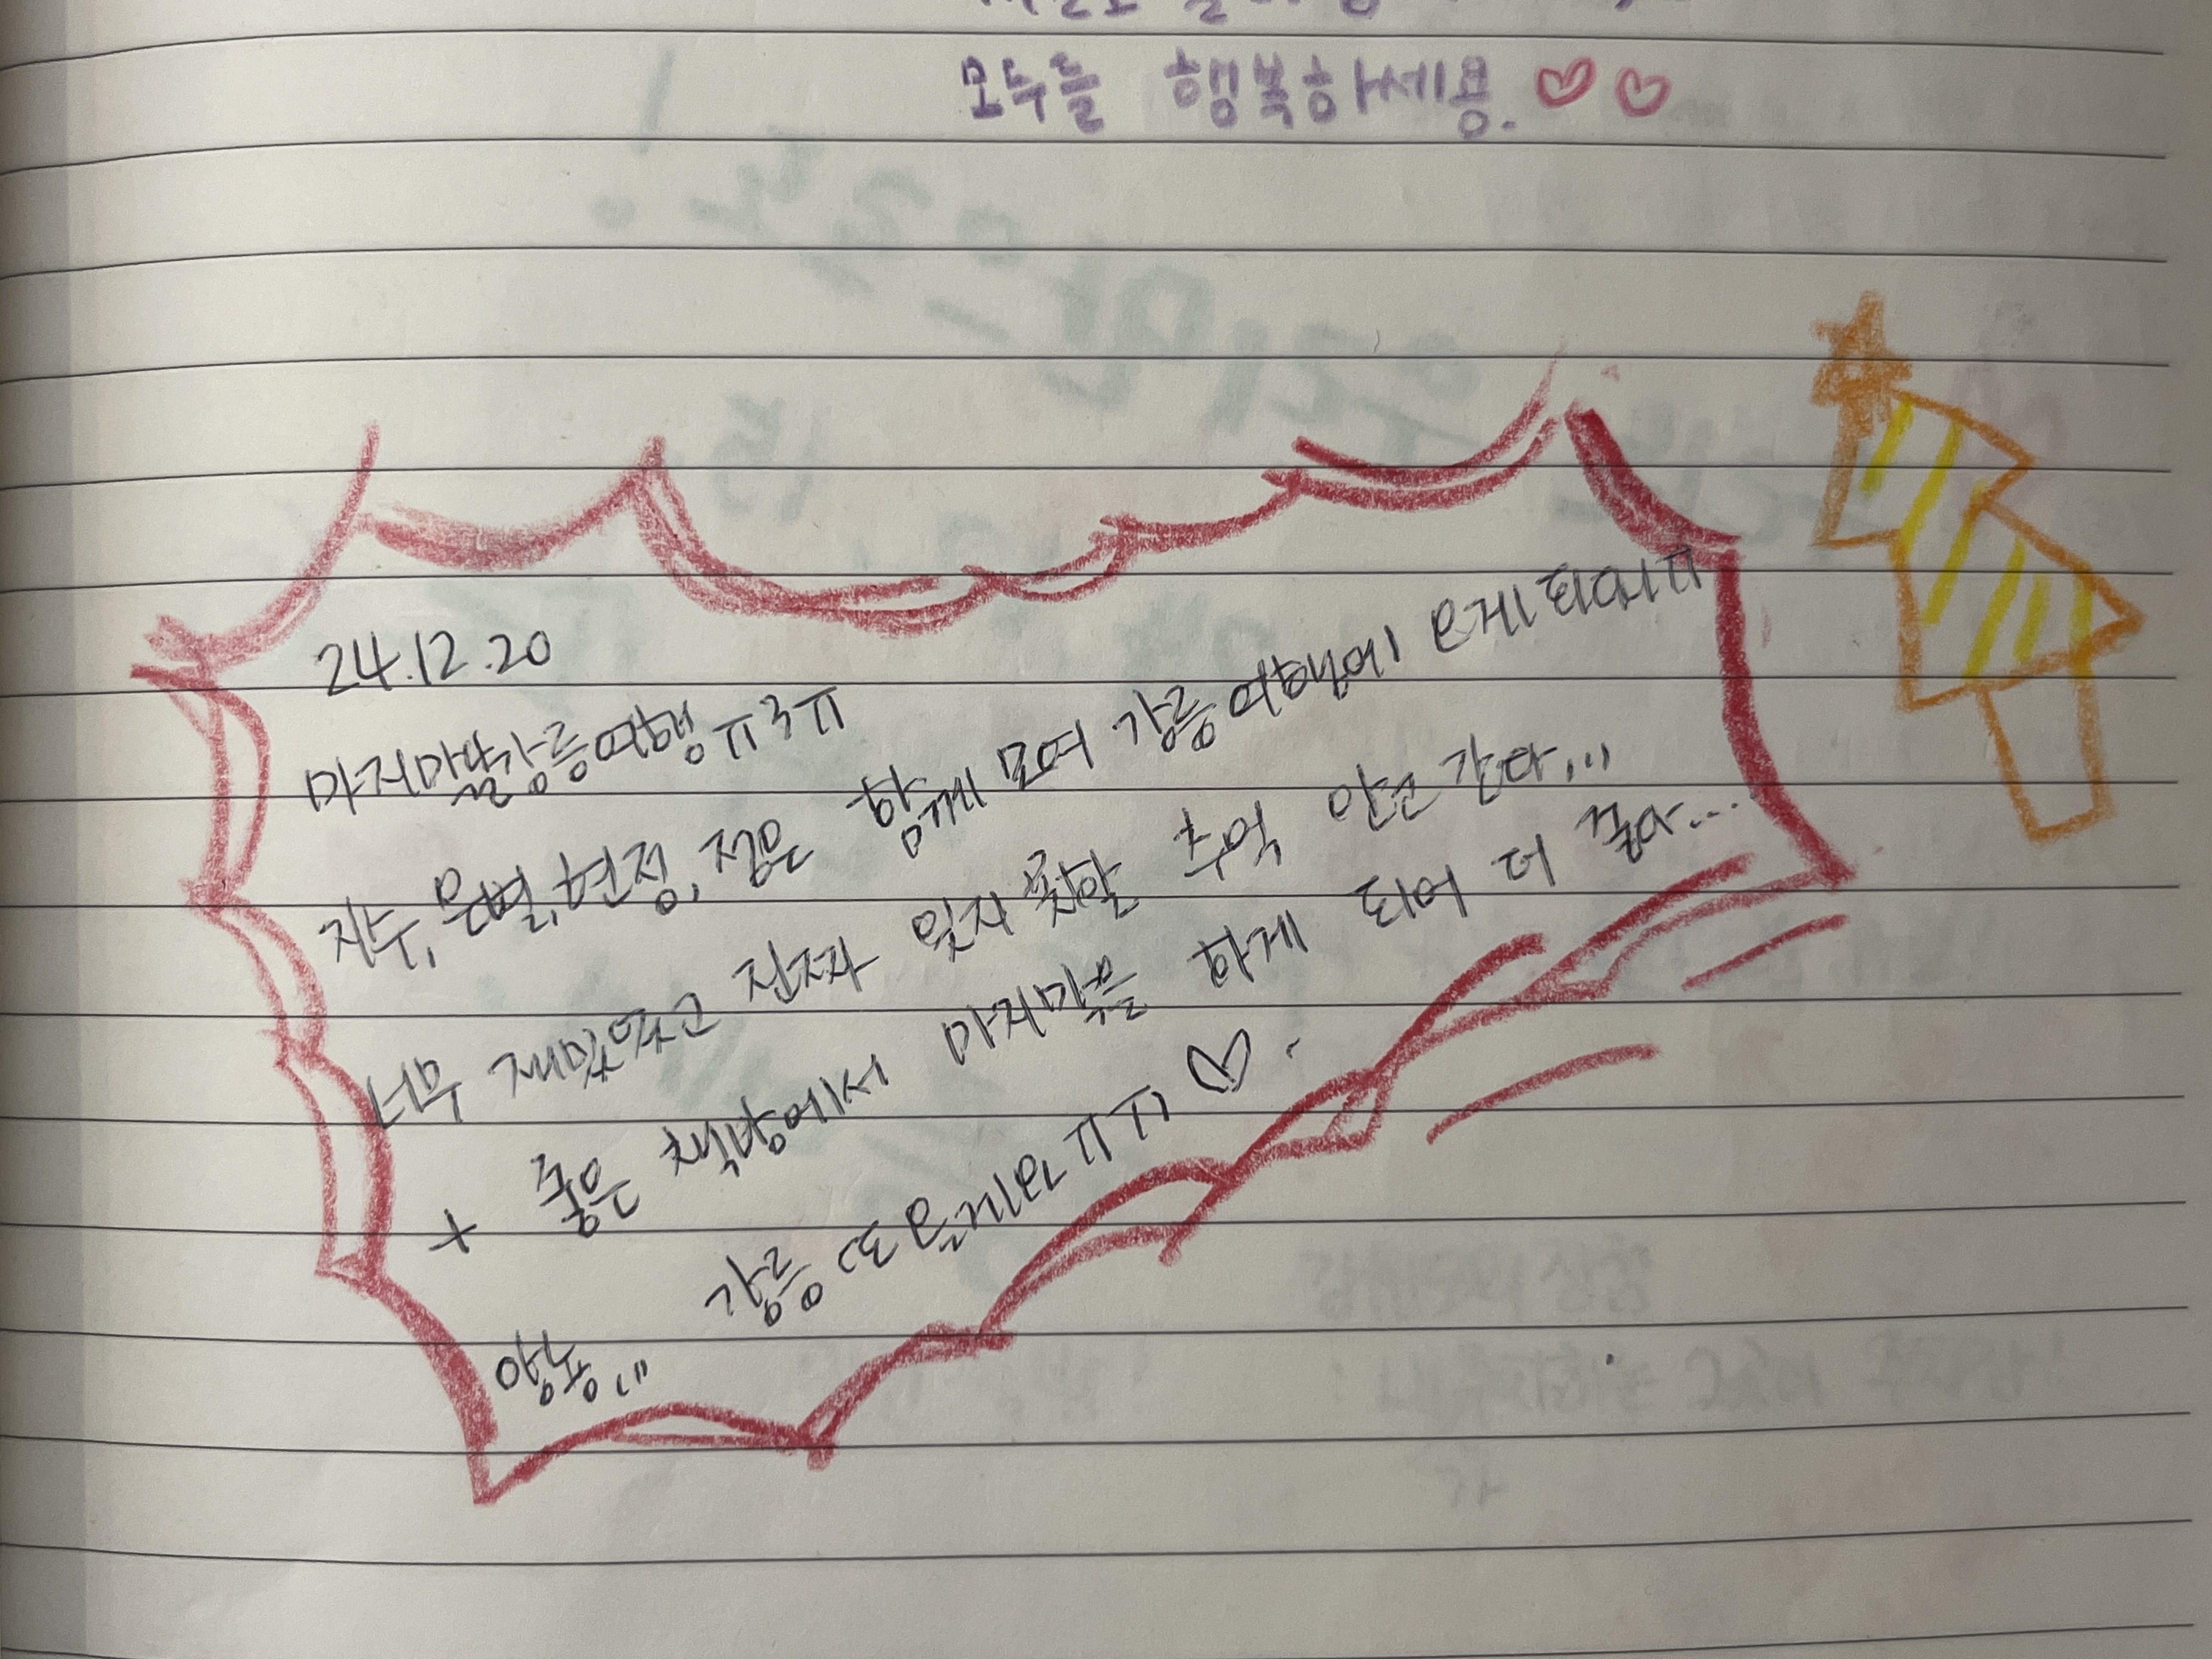 모두들 행복하세용.♡♡
24.12.20
마지막날강릉여행ㅠ3ㅠ
지수,은별,현정,정은 함께 모여 강릉여행에 오게되어ㅠ
너무 재밌었고 진짜 잊지못할 추억 안고 간다...
+ 좋은 책방에서 마지막을 하게 되어 더 좋다...
강릉 또올게만ㅠㅠ♡.
앙뇽...